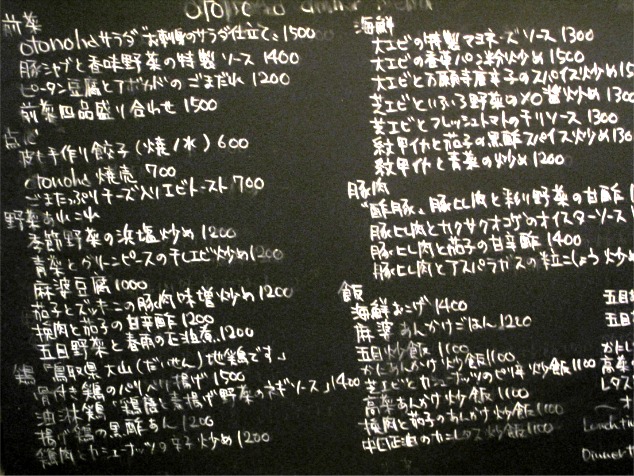 otonoha dinner menu
前菜
otonohaサラダ "お刺身のサラダ仕立て" 1500
豚シャブと香味野菜の特製ソース 1400
ピータン豆腐とアボカドのごまだれ 1200
前菜四品盛り合わせ 1500
点心
皮も手作り餃子(焼/水) 600
otonoha 焼売 700
ごまたっぷりチーズ入りエビトースト 700
野菜あれこれ
季節野菜の浜塩炒め 1200
青菜とグリーンピースの干しエビ炒め 1200
麻婆豆腐 1000
茄子とズッキーニの豚肉味噌炒め 1200
挽肉と茄子の甘辛酢 1200
五目野菜と春雨の醤油煮 1200
鶏 「鳥取県大山(だいせん)地鶏です」
骨付き鶏のパリパリ揚げ 1500
油淋鶏 「鶏唐と素揚げ野菜のネギソース」 1400
揚げ鶏の黒酢あん 1200
鶏肉とカシューナッツの辛子炒め 1200
海鮮
大エビの特製マヨネーズソース 1300
大エビの香港パン粉炒め 1500
大エビと万願寺唐辛子のスパイス炒め 15
芝エビといろいろ野菜のXO醤炒め 1300
芝エビとフレッシュトマトのチリソース 1300
紋甲イカと茄子の黒酢スパイス炒め 130
紋甲イカと青菜の炒め 1200
豚肉
"酢豚" 豚ヒレ肉と彩り野菜の甘酢 1
豚ヒレ肉とカクサクオコゲのオイスターソース 1
豚ヒレ肉と茄子の甘辛酢 1400
豚ヒレ肉とアスパラガスの粒こしょう炒め
飯
海鮮おこげ 1400
麻婆あんかけごはん 1200
五目炒飯 1100
かにあんかけ炒飯 1100
芝エビとカシューナッツのピリ辛炒飯 1100
高菜あんかけ炒飯 1100
挽肉と茄子のあんかけ炒飯 1100
レタス炒飯 1100
五目
五目
かに
高菜
レタス
Lunch time
Dinner t